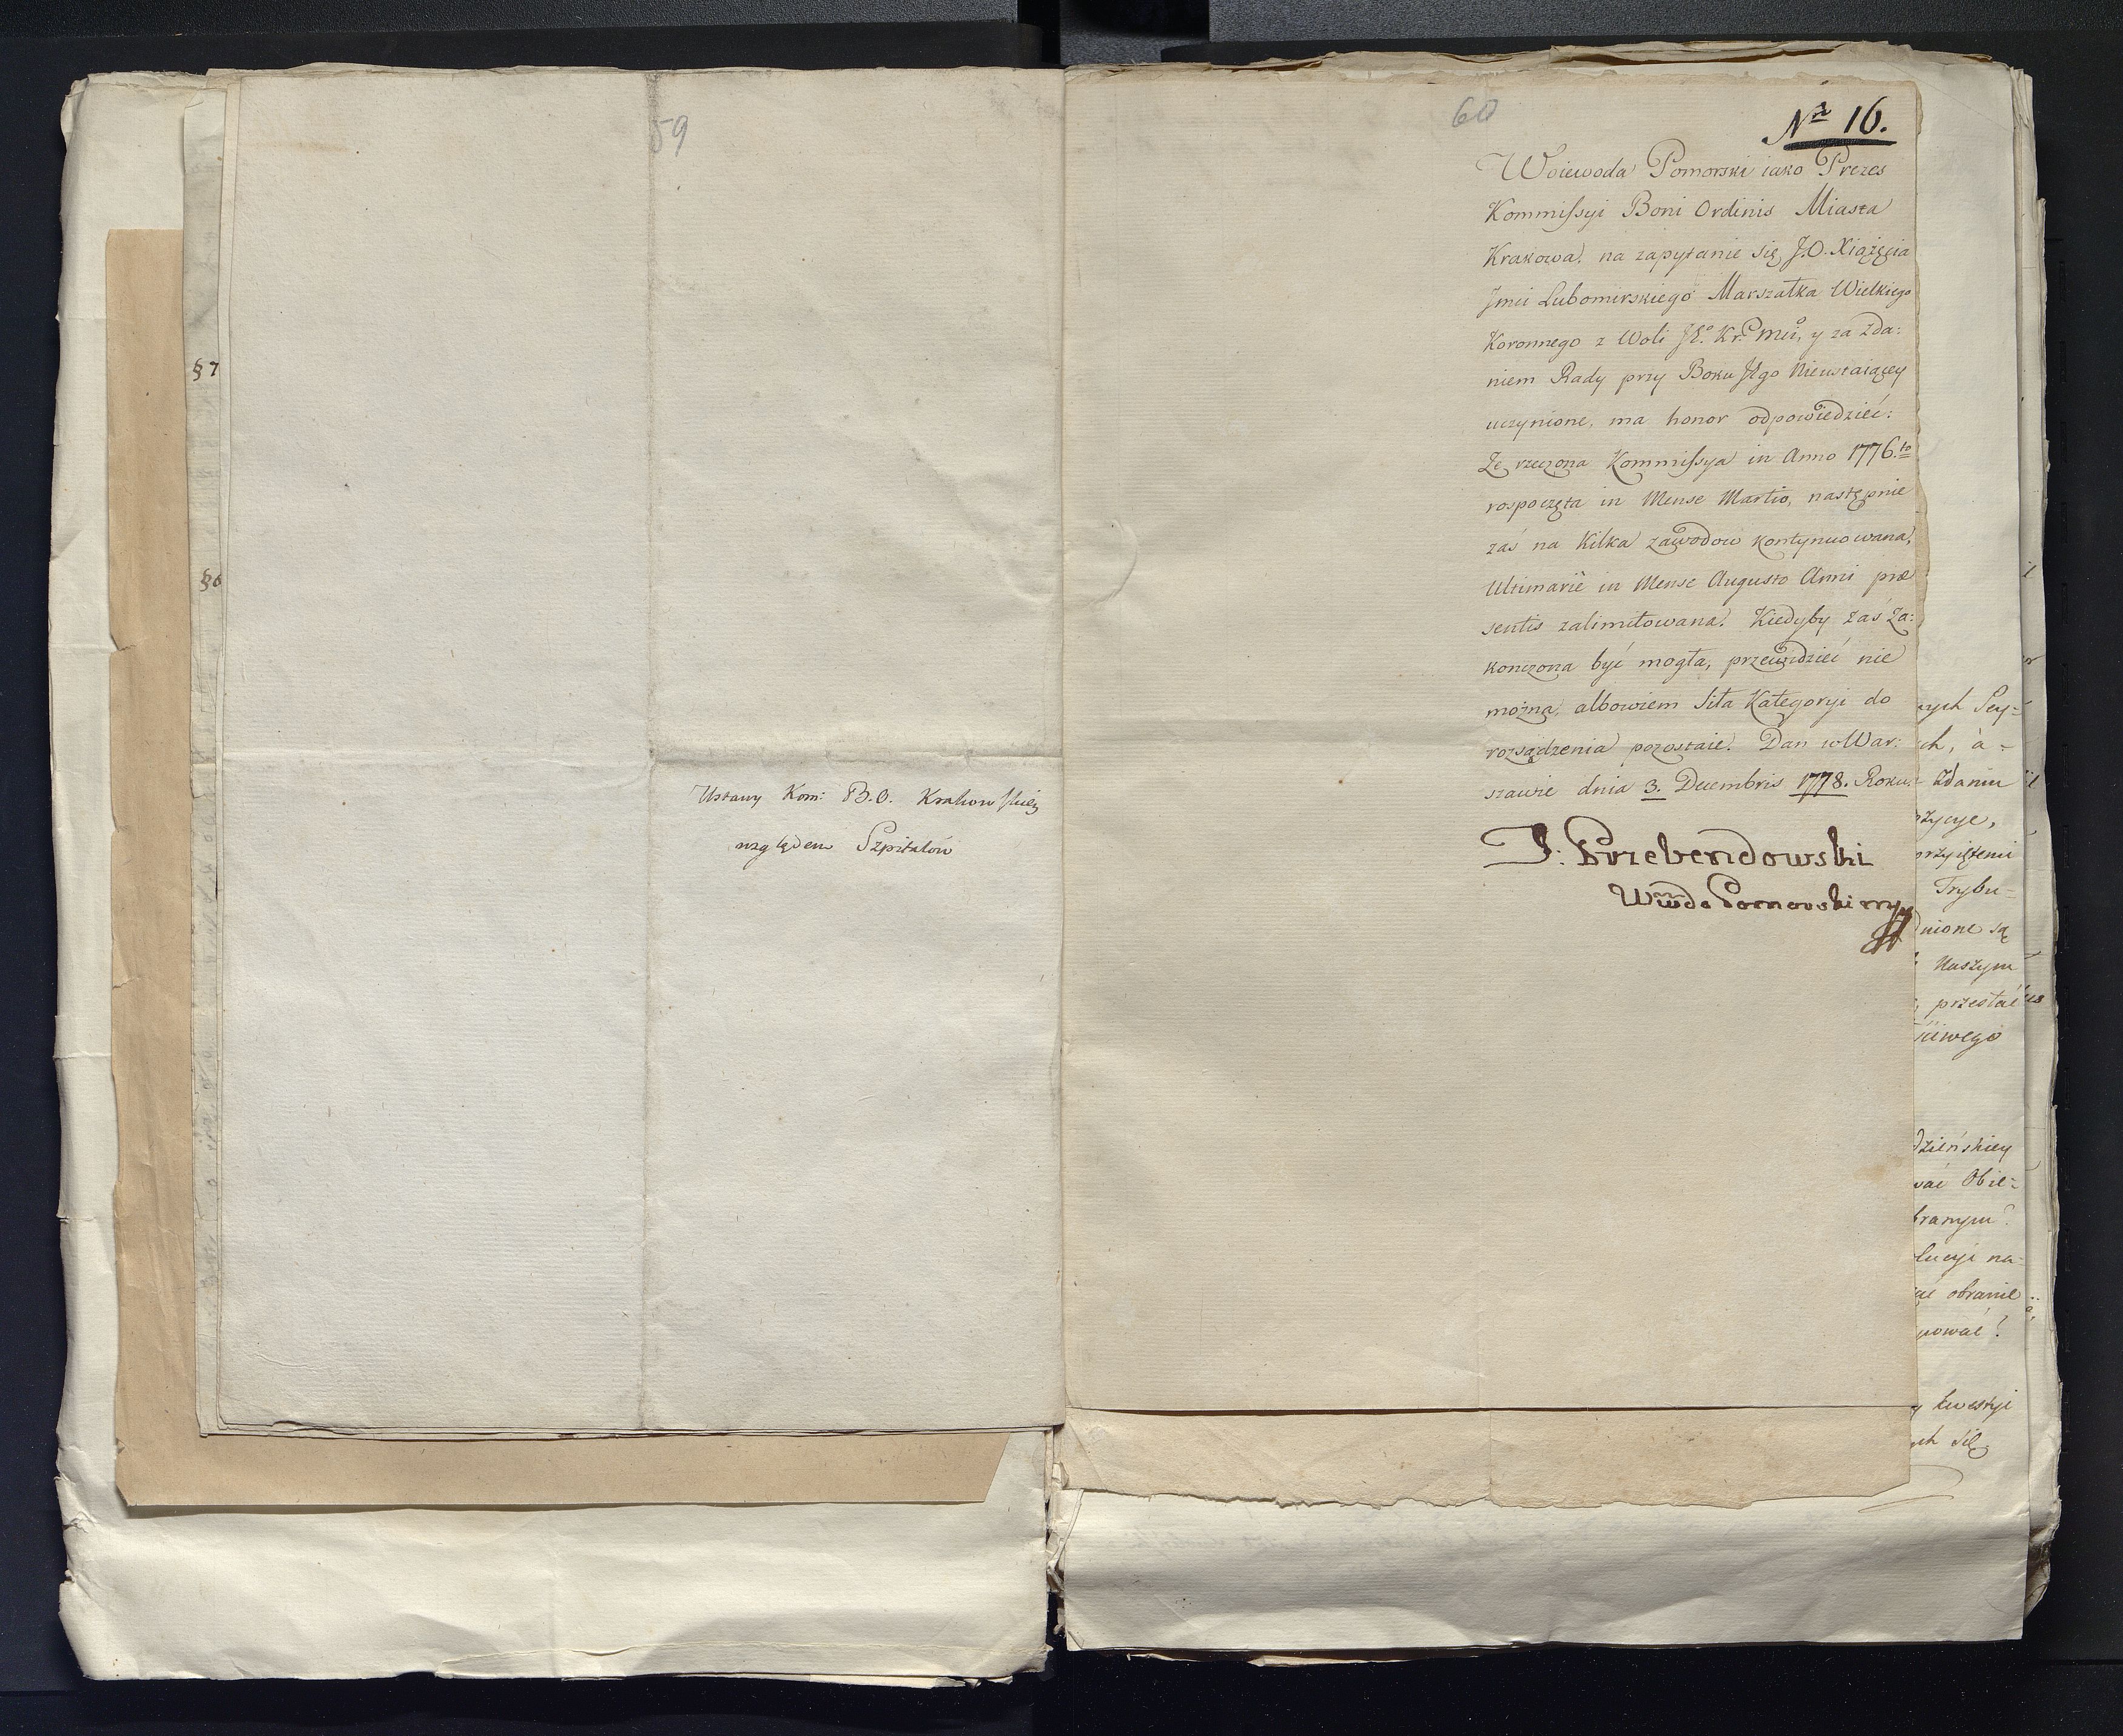 59
§ 7
§ 6
Ustawy Kom: B.O. Krakowskiey
względem Szpitalów
60
Nro 16.
Woiewoda Pomorski iako Prezes
Kommissyi Boni Ordinis Miasta
Krakowa, na zapytanie się J.O. Xiążęcia
Jmci Lubomirskiego Marszałka Wielkiego
Koronnego z Woli JKr. Mci, y za Zda:
niem Rady przy Boku Jego Nieustaiącey
uczynione, ma honor odpowiedzieć:
Że rzeczona Kommissya in Anno 1776.to
rospoczęta in Mense Martio, następnie
zaś na Kilka zawodow kontynuowana,
Ultimariè in Mense Augusto Anni præ
sentis zalimitowana. Kiedyby zaś Za:
konczona być mogła, przewidzieć nie
można, albowiem siła Kategoryi do
rozsądzenia pozostaie. Dan w War:
szawie dnia 3. Decembris 1778. Roku.
J: Przebendowski
Wwda Pomorski mp
nych Sey=
ch, a-
zdaniu
przyiętemi
Trybu=
nione są
Naszym
przestać
dzieńskiey
wać Obie=
branym
lucyi na=
obranie
pować?
kwestyi
ych się